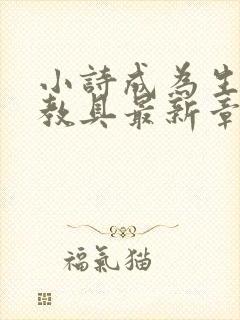 小詩成為生
教具最新章
福氣猫